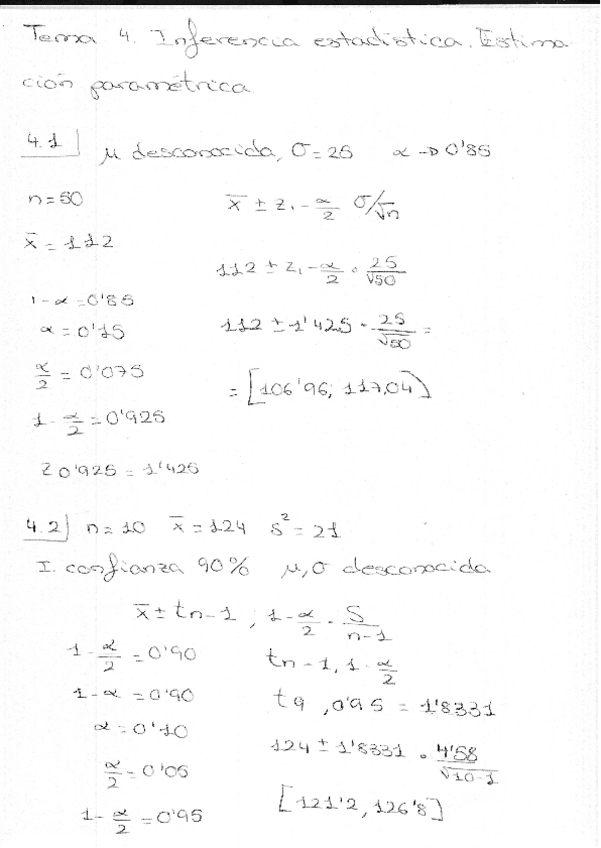 Tema 4. Inferencia estadística. Estima
ción paramétrica
4.1 μ desconocida, σ = 25 α → 0'85
n = 50
x̄ ± z₁ - α/2 σ/√n
x̄ = 112
112 ± z₁ - α/2 · 25/√50
1 - α = 0'85
α = 0'15
112 ± 1'425 · 25/√50 =
α/2 = 0'075
= [106'96; 117,04)
1 - α/2 = 0'925
z 0'925 = 1'425
4.2 n = 10 x̄ = 124 s² = 21
I. confianza 90% μ, σ desconocida
x̄ ± tn-1 ; 1 - α/2 · S/n-1
1 - α/2 = 0'90
tn-1, 1 - α/2
1 - α = 0'90
t9, 0'95 = 1'8331
α = 0'10
124 ± 1'8331 · 4'58/√10-1
α/2 = 0'05
[121'2, 126'8]
1 - α/2 = 0'95